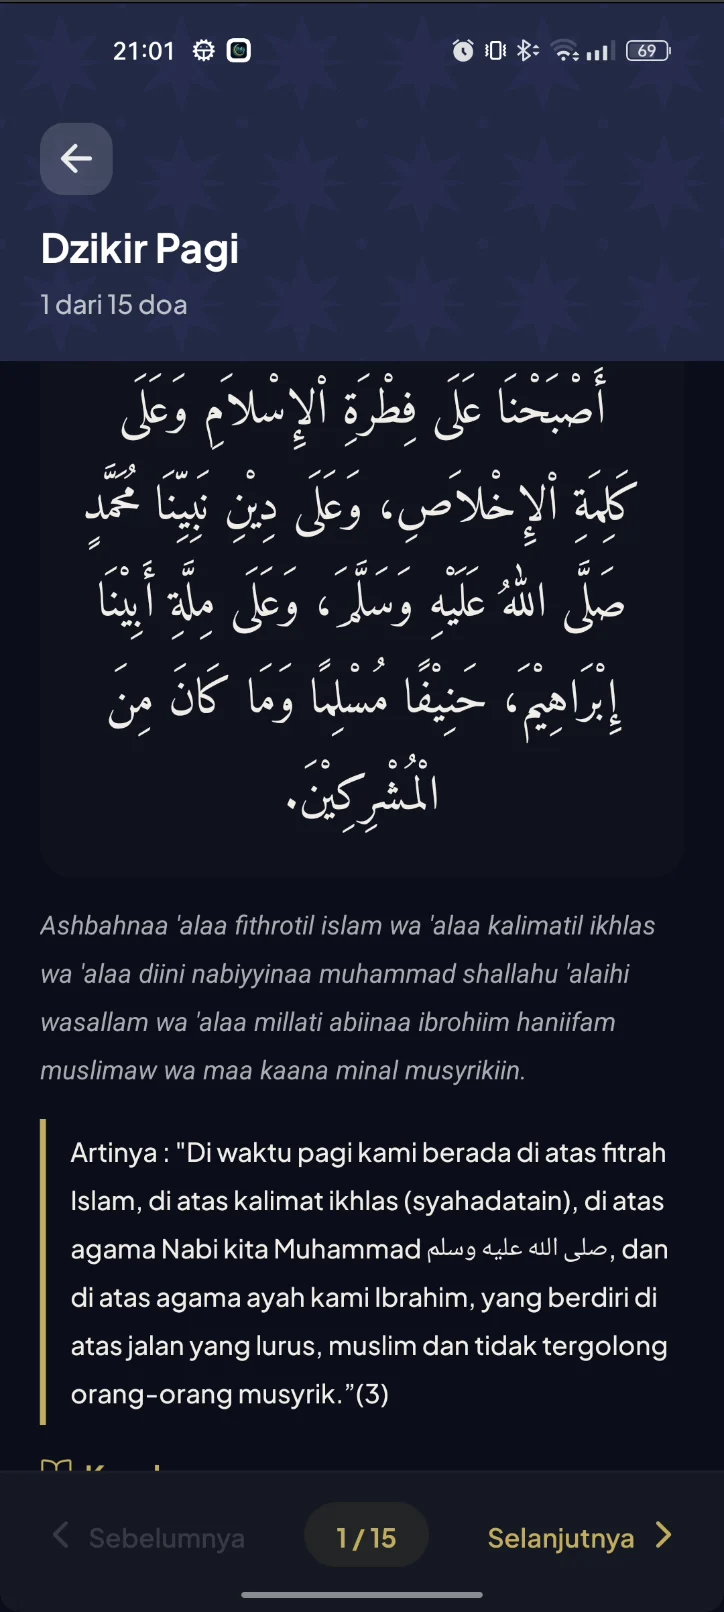 21:01
69
Dzikir Pagi
1 dari 15 doa
أَصْبَحْنَا عَلَى فِطْرَةِ اْلإِسْلاَمِ وَعَلَى
كَلِمَةِ اْلإِخْلاَصِ، وَعَلَى دِيْنِ نَبِيِّنَا مُحَمَّدٍ
صَلَّى اللهُ عَلَيْهِ وَسَلَّمَ، وَعَلَى مِلَّةِ أَبِيْنَا
إِبْرَاهِيْمَ، حَنِيْفًا مُسْلِمًا وَمَا كَانَ مِنَ
الْمُشْرِكِيْنَ.
Ashbahnaa 'alaa fithrotil islam wa 'alaa kalimatil ikhlas
wa 'alaa diini nabiyyinaa muhammad shallahu 'alaihi
wasallam wa 'alaa millati abiinaa ibrohiim haniifam
muslimaw wa maa kaana minal musyrikiin.
Artinya : "Di waktu pagi kami berada di atas fitrah
Islam, di atas kalimat ikhlas (syahadatain), di atas
agama Nabi kita Muhammad صلى الله عليه وسلم, dan
di atas agama ayah kami Ibrahim, yang berdiri di
atas jalan yang lurus, muslim dan tidak tergolong
orang-orang musyrik.”(3)
Sebelumnya
1 / 15
Selanjutnya